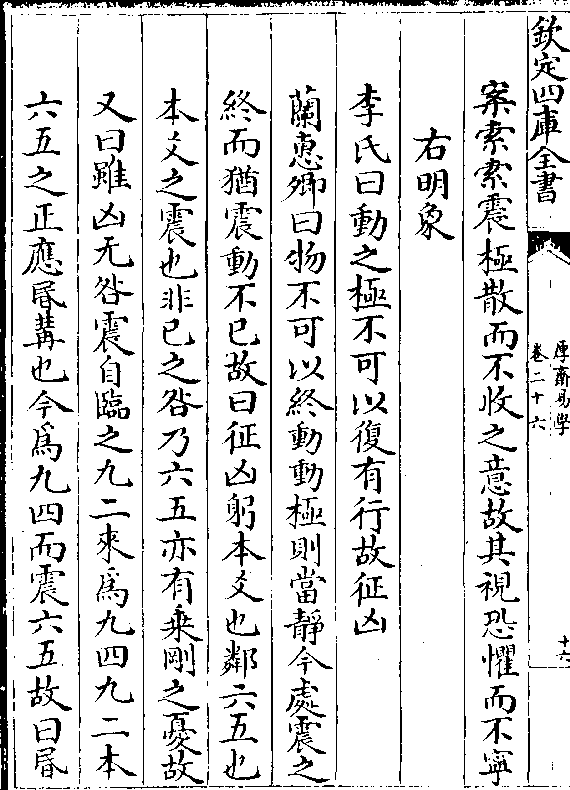 欽定四庫全書
厚齋易學
卷二十六
十六
案索索震極散而不收之意故其視恐懼而不寧
右明象
李氏曰動之極不可以復有行故征凶
蘭惠卿曰物不可以終動動極則當靜今處震之
終而猶震動不已故曰征凶躬本爻也鄰六五也
本爻之震也非已之咎乃六五亦有乗剛之憂故
又曰雖凶无咎震自臨之九二來爲九四九二本
六五之正應㛰媾也今爲九四而震六五故曰㛰